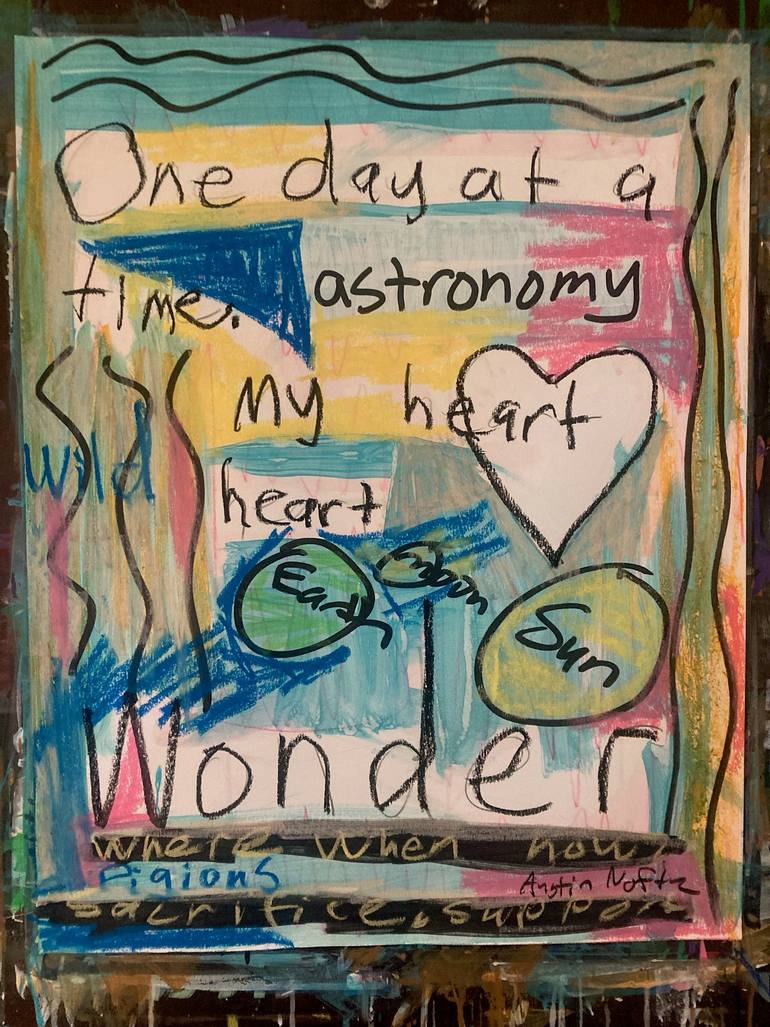 One day at a
time. astronomy
my heart
wild
heart
Earth moon
Sun
Wonder
where when now?
sacrifice. support